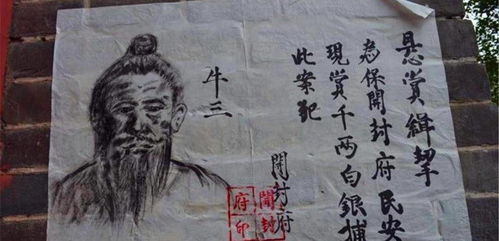 悬赏缉拏
為保開封府民安
現賞千両白銀捕
此案犯
開封府
牛三
開封
府印